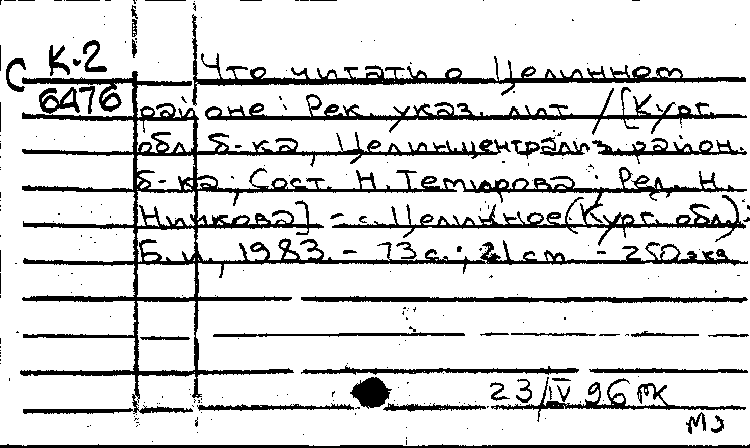 С К-2
6476
Что читать о Целинном
районе: Рек. указ. лит / [Кург.
обл б-ка, Целин.централиз. район.
б-ка; Сост. Н. Темирова; Ред. Н.
]. - с. Целинное (Кург. обл.):
Б. и., 1983. - 73 с.; 21 см - 250 экз
23/IV 96 пк